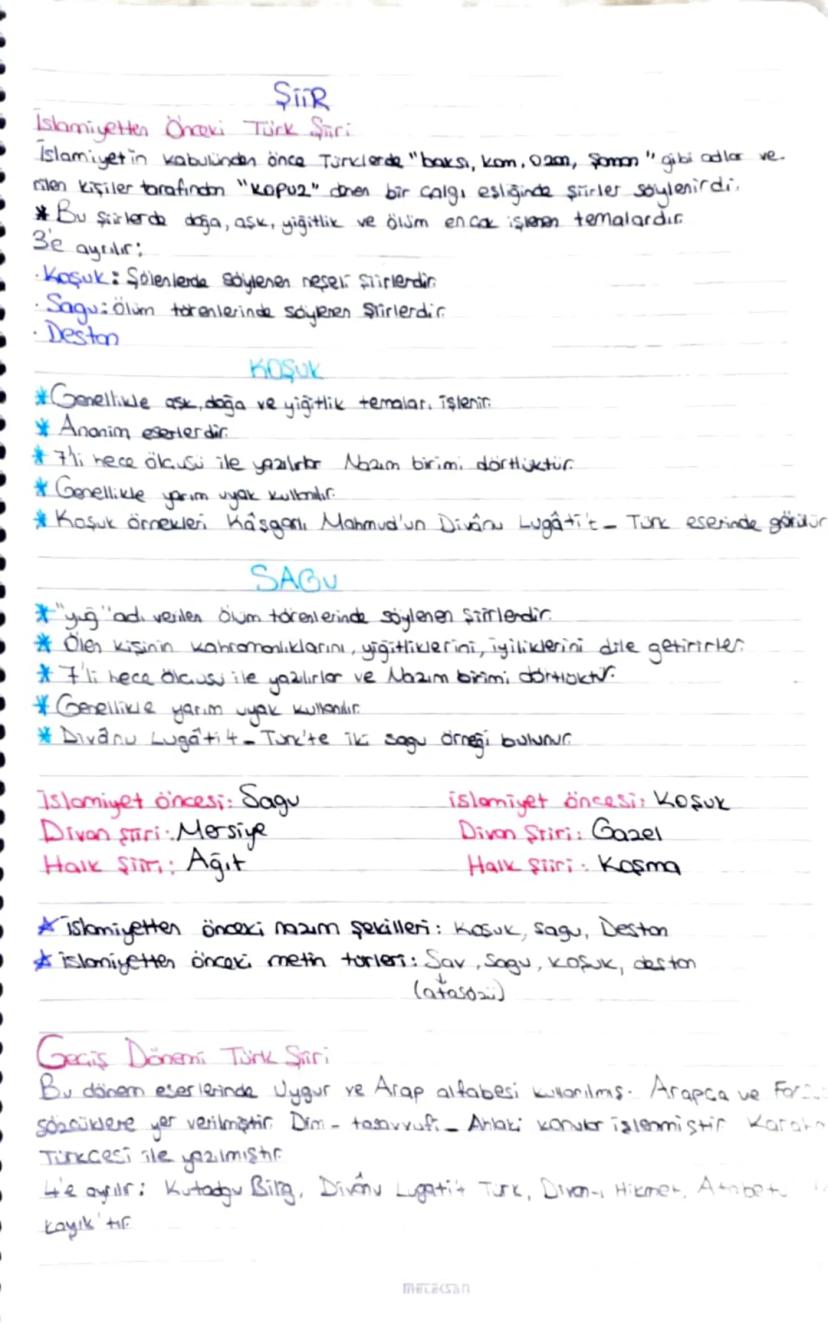 ŞİİR
İslamiyetten Önceki Türk Şiiri
İslamiyet'in kabulünden önce Türklerde "baksı, kam, ozan, şaman" gibi adlar ve-
rilen kişiler tarafından "KOPUZ" denen bir çalgı eşliğinde şiirler söylenirdi.
* Bu şiirlerde doğa, aşk, yiğitlik ve ölüm en çok işlenen temalardır.
3'e ayrılır:
· Koşuk: Şölenlerde söylenen neşeli şiirlerdir.
· Sagu: ölüm törenlerinde söylenen şiirlerdir.
· Destan
KOŞUK
* Genellikle aşk, doğa ve yiğitlik temaları işlenir.
* Anonim eserlerdir.
* 7'li hece ölçüsü ile yazılırlar Nazım birimi dörtlüktür.
* Genellikle yarım uyak kullanılır.
* Koşuk örnekleri Kâşgarlı Mahmud'un Divânu Lugâti't - Türk eserinde görülür
SAGU
* "yuğ" adı verilen ölüm törenlerinde söylenen şiirlerdir.
* Ölen kişinin kahramanlıklarını, yiğitliklerini, iyiliklerini dile getirirler.
* 7'li hece ölçüsü ile yazılırlar ve Nazım birimi dörtlüktür.
* Genellikle yarım uyak kullanılır.
* Divânu Lugâti't - Türk'te iki sagu örneği bulunur.
İslamiyet öncesi: Sagu İslamiyet öncesi: Koşuk
Divan Şiiri: Mersiye Divan Şiiri: Gazel
Halk Şiiri: Ağıt Halk Şiiri: Koşma
* İslamiyetten önceki nazım şekilleri: Koşuk, Sagu, Destan
* İslamiyetten önceki metin türleri: Sav, Sagu, Koşuk, destan
(atasözü)
Geçiş Dönemi Türk Şiiri
Bu dönem eserlerinde Uygur ve Arap alfabesi kullanılmış. Arapça ve
sözcüklere yer verilmiştir. Dini - tasavvufi - Ahlaki konular işlenmiştir
Türkçesi ile yazılmıştır.
4'e ayrılır: Kutadgu Bilig, Divânu Lugati't Türk, Divan-ı Hikmet, Atabetü
Hayık'tır.
metaksan